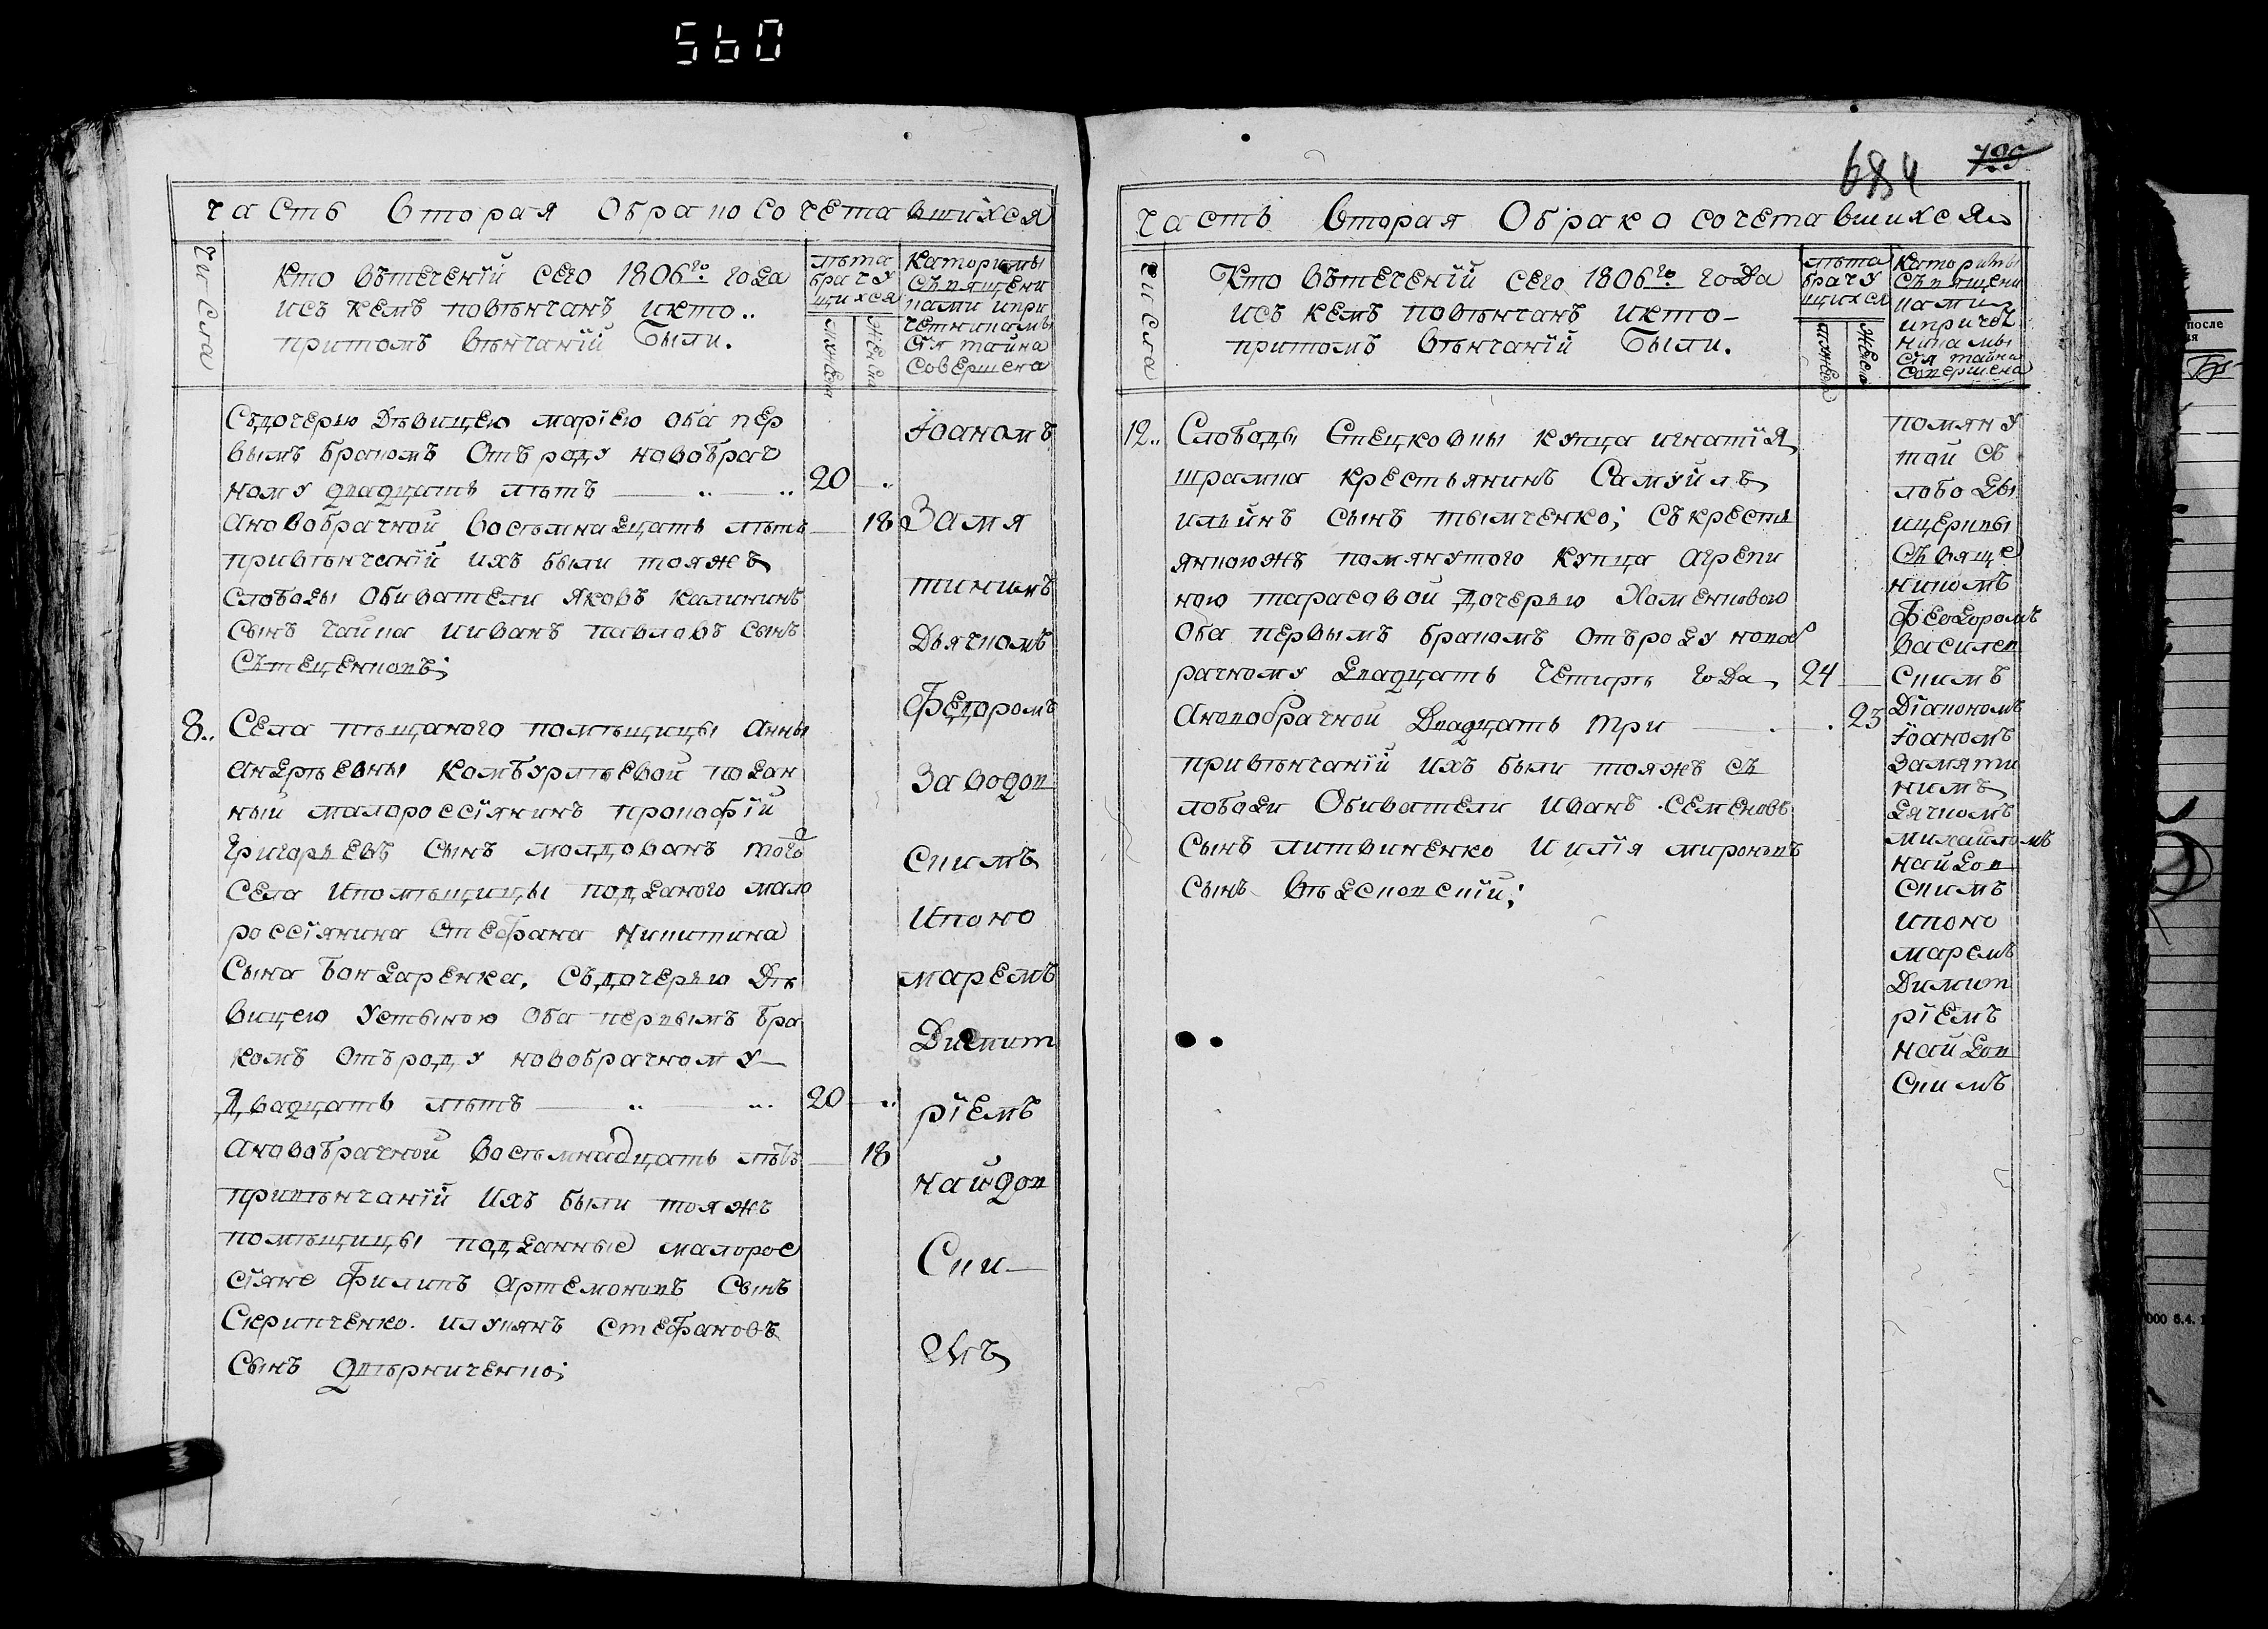 560
часть вторая Обракосочетавшихся
числа
Кто втеченїй сего 1806го года
исъ кемъ повѣнчанъ икто..
притомъ вѣнчанїй Были.
лѣта
брачу
щихся
мужеска
женска
Которимы
Священи
ками ипри
четникамы
Сїя тайна
Совершена
Съдочерью Дѣвицею марїею оба пер
вымъ бракомъ Отъ роду новобрач
ному двадцать лѣтъ 20
Ановобрачной восемнадцать лѣтъ 18
привѣнчанїй ихъ были тояжъ
слободы Обиватели Яковъ калининъ
сынъ чайка ииванъ павловъ сынъ
Сътеценковъ;
Їоаномъ
Замя
тинимъ
Дьячкомъ
Федоромъ
Заводов
скимъ
ипоно
маремъ
Димит
рїемъ
найдов
Ски
мъ
8.. Села пѣщаного помѣщицы Анны
андрѣевны комбурлѣевой подан
ный малороссїянинъ прокофїй
григорьевъ сынъ молдованъ того
села ипомѣщицы подданого мало
россїянина Стефана никитина
Сына бондаренка, съдочерью Дѣ
вицею устьиною Оба первымъ бра
комъ Отъроду новобрачному
Двадцать лѣтъ 20
Ановобрачной восемнадцать лѣтъ 18
привѣнчанїй ихъ были тояжъ
помѣщицы подданные малорос
сїяне Филипъ Артемоновъ сынъ
Скрипченко. илукянъ стефановъ
сынъ
684 799
часть вторая Обракосочетавшихся
числа
Кто вътеченїй сего 1806го года
исъ кемъ повѣнчанъ икто
притомъ вѣнчанїй Были.
лѣта
брачу
щихся
мужеска
женска
Которимы
Священи
ками
ипричет
никамы
сїя тайна
совершена
12.. Слободы Стецковки купца игнатїя
шрамка крестьянинъ Самуйлъ
ильинъ сынъ тымченко; съкресть
янкоюжъ помянутого купца агрепи
ною тарасовой дочерью Хоменковою
Оба первымъ бракомъ отъроду новоб
рачному двадцать четирѣ года 24
Ановобрачной Двадцать три 23
привѣнчанїй ихъ были тояжъ съ
лободи Обиватели иванъ Семеновъ
сынъ литвиненко иилїя мироновъ
сынъ
помяну
той сѣ
лободы
ицеркы
Съвяще
никомъ
Феодоромъ
василев
скимъ
Дїякономъ
Їоаномъ
Замяти
нимъ
дячкомъ
михайломъ
найдов
скимъ
ипоно
маремъ
Димит
рїемъ
найдов
скимъ
после
000 6.4.